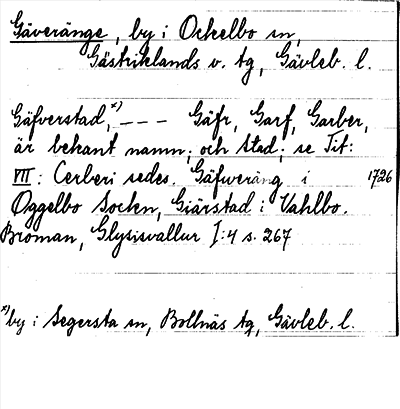 Gäveränge, by i Ockelbo sn,
Gästriklands v. tg, Gävleb. l.
Gäfverstad,*) --- Gäfr, Garf, Garber,
är bekant namn; och stad; se Tit:
VIII: Cerberi sedes. Gäfweräng i 1726
Oggelbo Socken, Giärstad i Vahlbo.
Broman, Glysisvallur I:4 s. 267
*) by i Segersta sn, Bollnäs tg, Gävleb. l.